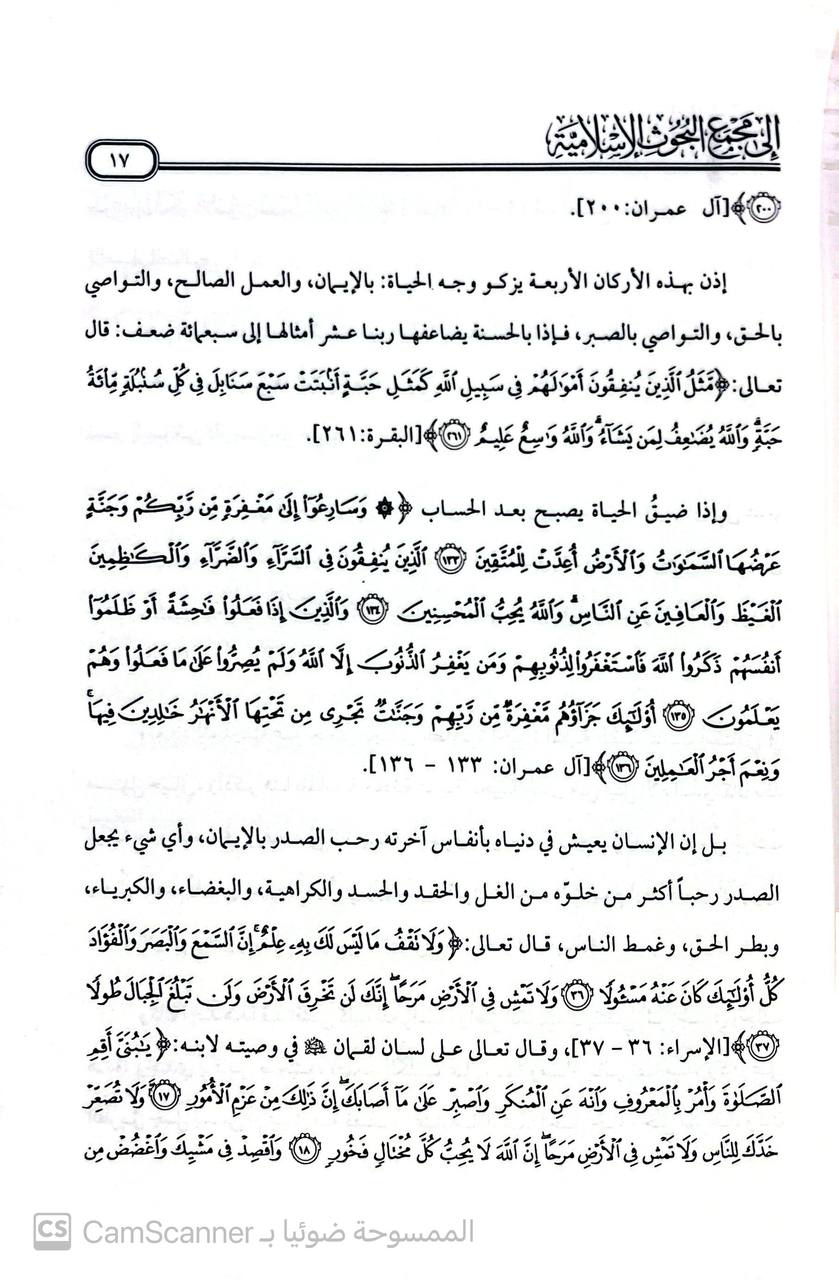 إلى مجمع البحوث الإسلامية
١٧
﴿٢٠٠﴾ [آل عمران: ٢٠٠].
إذن بهذه الأركان الأربعة يزكو وجه الحياة: بالإيمان، والعمل الصالح، والتواصي
بالحق، والتواصي بالصبر، فإذا بالحسنة يضاعفها ربنا عشر أمثالها إلى سبعمائة ضعف: قال
تعالى: ﴿مَّثَلُ الَّذِينَ يُنفِقُونَ أَمْوَٰلَهُمْ فِي سَبِيلِ اللَّهِ كَمَثَلِ حَبَّةٍ أَنۢبَتَتْ سَبْعَ سَنَابِلَ فِي كُلِّ سُنۢبُلَةٍ مِّا۟ئَةُ
حَبَّةٍ ۗ وَاللَّهُ يُضَٰعِفُ لِمَن يَشَآءُ ۗ وَاللَّهُ وَٰسِعٌ عَلِيمٌ ٢٦١﴾ [البقرة: ٢٦١].
وإذا ضيقُ الحياة يصبح بعد الحساب ﴿۞ وَسَارِعُوٓا۟ إِلَىٰ مَغْفِرَةٍ مِّن رَّبِّكُمْ وَجَنَّةٍ
عَرْضُهَا السَّمَٰوَٰتُ وَالْأَرْضُ أُعِدَّتْ لِلْمُتَّقِينَ ١٣٣ الَّذِينَ يُنفِقُونَ فِي السَّرَّآءِ وَالضَّرَّآءِ وَالْكَٰظِمِينَ
الْغَيْظَ وَالْعَافِينَ عَنِ النَّاسِ ۗ وَاللَّهُ يُحِبُّ الْمُحْسِنِينَ ١٣٤ وَالَّذِينَ إِذَا فَعَلُوا۟ فَٰحِشَةً أَوْ ظَلَمُوٓا۟
أَنفُسَهُمْ ذَكَرُوا۟ اللَّهَ فَاسْتَغْفَرُوا۟ لِذُنُوبِهِمْ وَمَن يَغْفِرُ الذُّنُوبَ إِلَّا اللَّهُ وَلَمْ يُصِرُّوا۟ عَلَىٰ مَا فَعَلُوا۟ وَهُمْ
يَعْلَمُونَ ١٣٥ أُو۟لَٰٓئِكَ جَزَآؤُهُم مَّغْفِرَةٌ مِّن رَّبِّهِمْ وَجَنَّٰتٌ تَجْرِي مِن تَحْتِهَا الْأَنْهَٰرُ خَٰلِدِينَ فِيهَا ۚ
وَنِعْمَ أَجْرُ الْعَٰمِلِينَ ١٣٦﴾ [آل عمران: ١٣٣ - ١٣٦].
بل إن الإنسان يعيش في دنياه بأنفاس آخرته رحب الصدر بالإيمان، وأي شيء يجعل
الصدر رحباً أكثر من خلوّه من الغل والحقد والحسد والكراهية، والبغضاء، والكبرياء،
وبطر الحق، وغمط الناس، قال تعالى: ﴿وَلَا تَقْفُ مَا لَيْسَ لَكَ بِهِۦ عِلْمٌ ۚ إِنَّ السَّمْعَ وَالْبَصَرَ وَالْفُؤَادَ
كُلُّ أُو۟لَٰٓئِكَ كَانَ عَنْهُ مَسْـُٔولًا ٣٦ وَلَا تَمْشِ فِي الْأَرْضِ مَرَحًا ۖ إِنَّكَ لَن تَخْرِقَ الْأَرْضَ وَلَن تَبْلُغَ الْجِبَالَ طُولًا
٣٧﴾ [الإسراء: ٣٦ - ٣٧]، وقال تعالى على لسان لقمان ﷺ في وصيته لابنه: ﴿يَٰبُنَيَّ أَقِمِ
الصَّلَوٰةَ وَأْمُرْ بِالْمَعْرُوفِ وَانْهَ عَنِ الْمُنكَرِ وَاصْبِرْ عَلَىٰ مَآ أَصَابَكَ ۖ إِنَّ ذَٰلِكَ مِنْ عَزْمِ الْأُمُورِ ١٧ وَلَا تُصَعِّرْ
خَدَّكَ لِلنَّاسِ وَلَا تَمْشِ فِي الْأَرْضِ مَرَحًا ۖ إِنَّ اللَّهَ لَا يُحِبُّ كُلَّ مُخْتَالٍ فَخُورٍ ١٨ وَاقْصِدْ فِي مَشْيِكَ وَاغْضُضْ مِن
CS CamScanner الممسوحة ضوئيا بـ